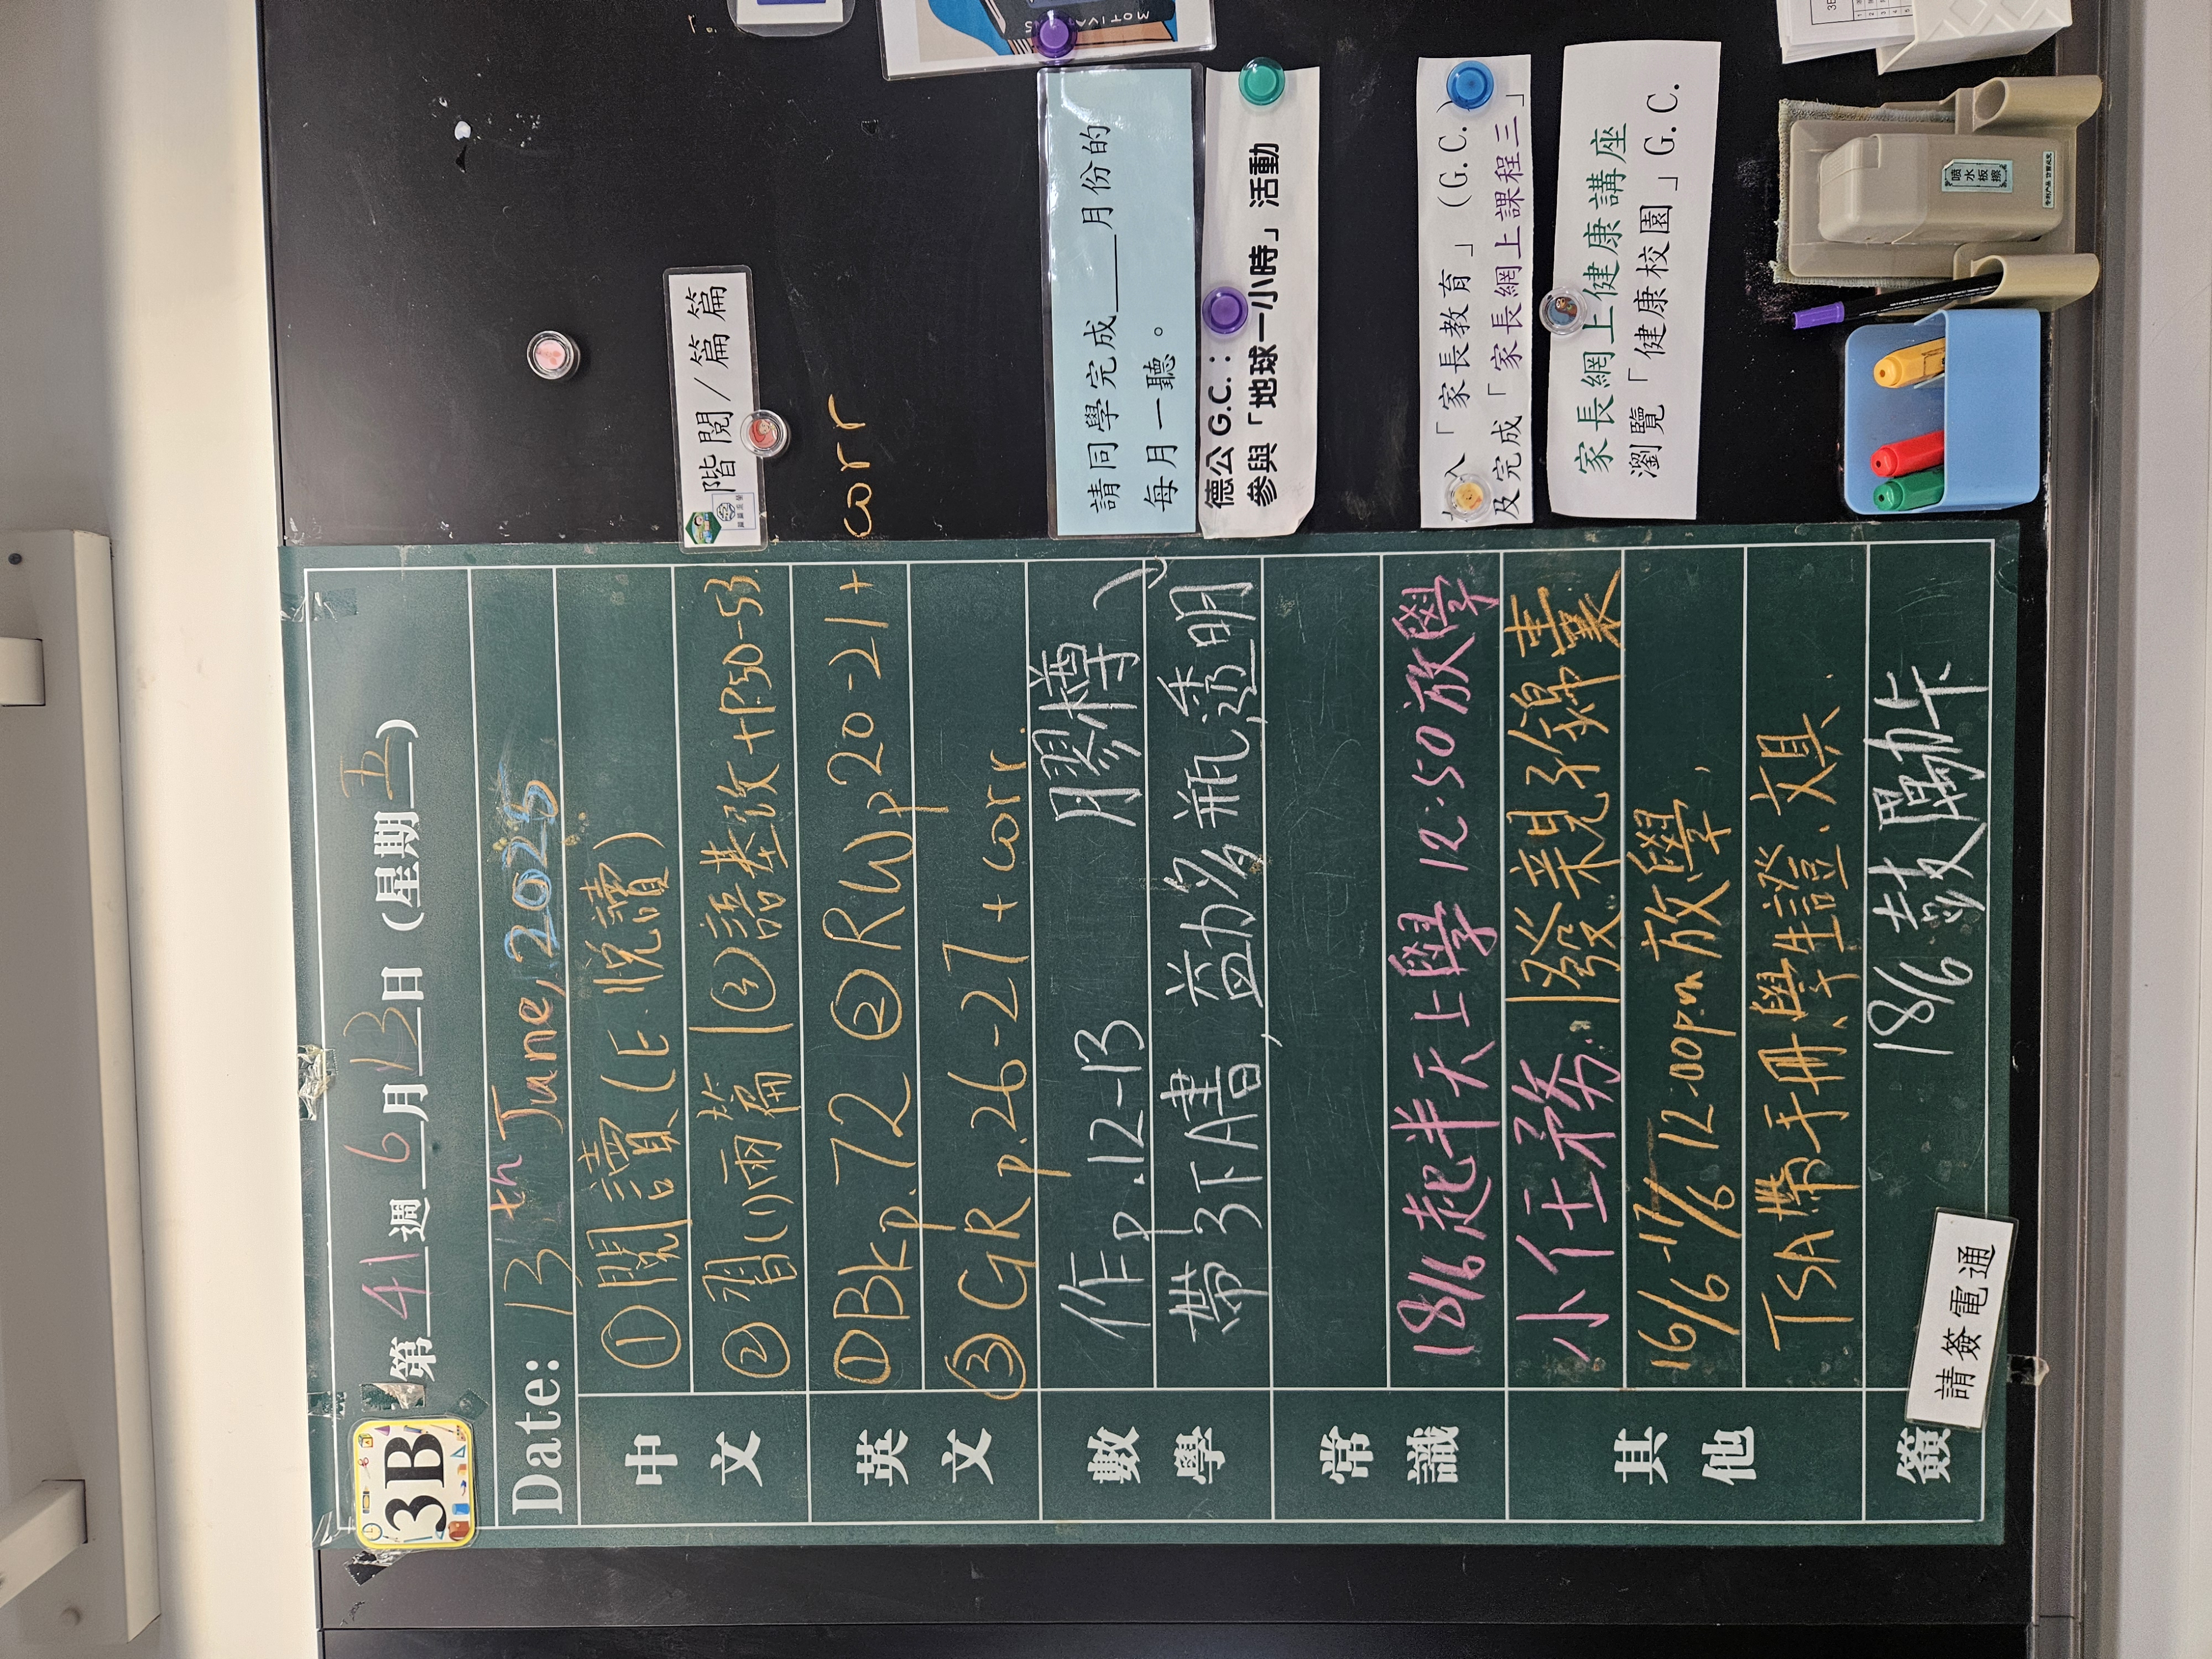 3B
第41週6月13日(星期五)
Date: 13th June, 2025
中文
①閱讀(E悅讀)
②習(1)兩篇
③語基改+P.50-53
英文
①Bk p.72 ②RW p.20-21+
corr
③GR p.26-27+corr.
數學
作p.12-13
膠樽
帶3下A書,益力多瓶,透明
常識
18/6起半天上學 12:50放學
其他
小任務:
發親子錦囊
16/6-17/6 12:00p.m放學,
TSA帶手冊、學生證、文具
簽
18/6鼓勵卡
請簽電通
階閱/篇篇
MOTIVA
請同學完成___月份的
每月一聽。
德公 G.C.:
參與「地球一小時」活動
入「家長教育」(G.C.)
及完成「家長網上課程三」
家長網上健康講座
瀏覽「健康校園」G.C.
噴水板擦